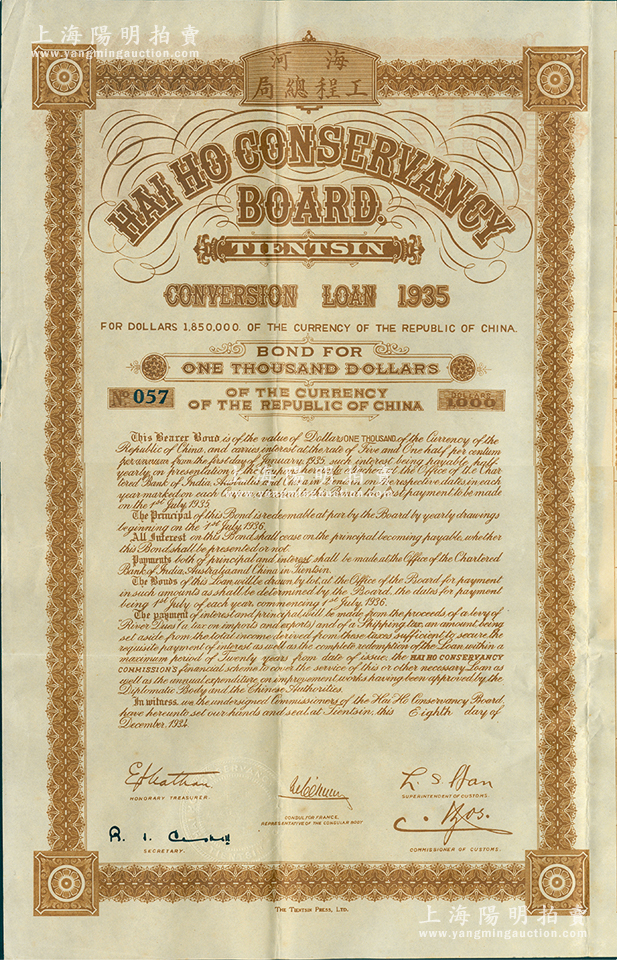 上海陽明拍賣
www.yangmingauction.com
海河
工程總局
HAI HO CONSERVANCY
BOARD.
TIENTSIN
CONVERSION LOAN 1935
FOR DOLLARS 1,850,000. OF THE CURRENCY OF THE REPUBLIC OF CHINA.
BOND FOR
ONE THOUSAND DOLLARS
No. 057
OF THE CURRENCY
OF THE REPUBLIC OF CHINA
DOLLARS
1000
This Bearer Bond is of the value of Dollars ONE THOUSAND of the Currency of the
Republic of China, and carries interest at the rate of Five and One half per centum
per annum from the first day of January 1935, such interest being payable half
yearly on presentation of the coupons hereto attached at the Office of the Char-
tered Bank of India, Australia and China in Tientsin on the respective dates in each
year marked on each Coupon attached to this Bond, the first payment to be made
on the 1st July 1935.
The Principal of this Bond is redeemable at par by the Board by yearly drawings
beginning on the 1st July 1936.
All Interest on this Bond shall cease on the principal becoming payable, whether
this Bond shall be presented or not.
Payments both of principal and interest shall be made at the Office of the Chartered
Bank of India, Australia and China in Tientsin.
The Bonds of this Loan will be drawn by lot, at the Office of the Board for payment
in such amounts as shall be determined by the Board, the dates for payment
being 1st July of each year, commencing 1st July 1936.
The payment of interest and principal will be made from the proceeds of a levy of
"River Dues" (a tax on imports and exports) and of a Shipping tax, an amount being
set aside from the total income derived from these taxes sufficient to secure the
requisite payment of interest as well as the complete redemption of the Loan within a
maximum period of Twenty years from date of issue, the HAI HO CONSERVANCY
COMMISSION'S financial scheme to cover the service of this or other necessary Loan as
well as the annual expenditure on improvement works having been approved by the
Diplomatic Body and the Chinese Authorities.
In witness we the undersigned Commissioners of the Hai Ho Conservancy Board,
have hereunto set our hands and seal at Tientsin, this Eighth day of
December, 1934.
HONORARY TREASURER.
CONSUL FOR FRANCE,
REPRESENTATIVE OF THE CONSULAR BODY
SUPERINTENDENT OF CUSTOMS.
SECRETARY.
COMMISSIONER OF CUSTOMS.
THE TIENTSIN PRESS, LTD.
上海陽明拍賣
www.yangmingauction.com